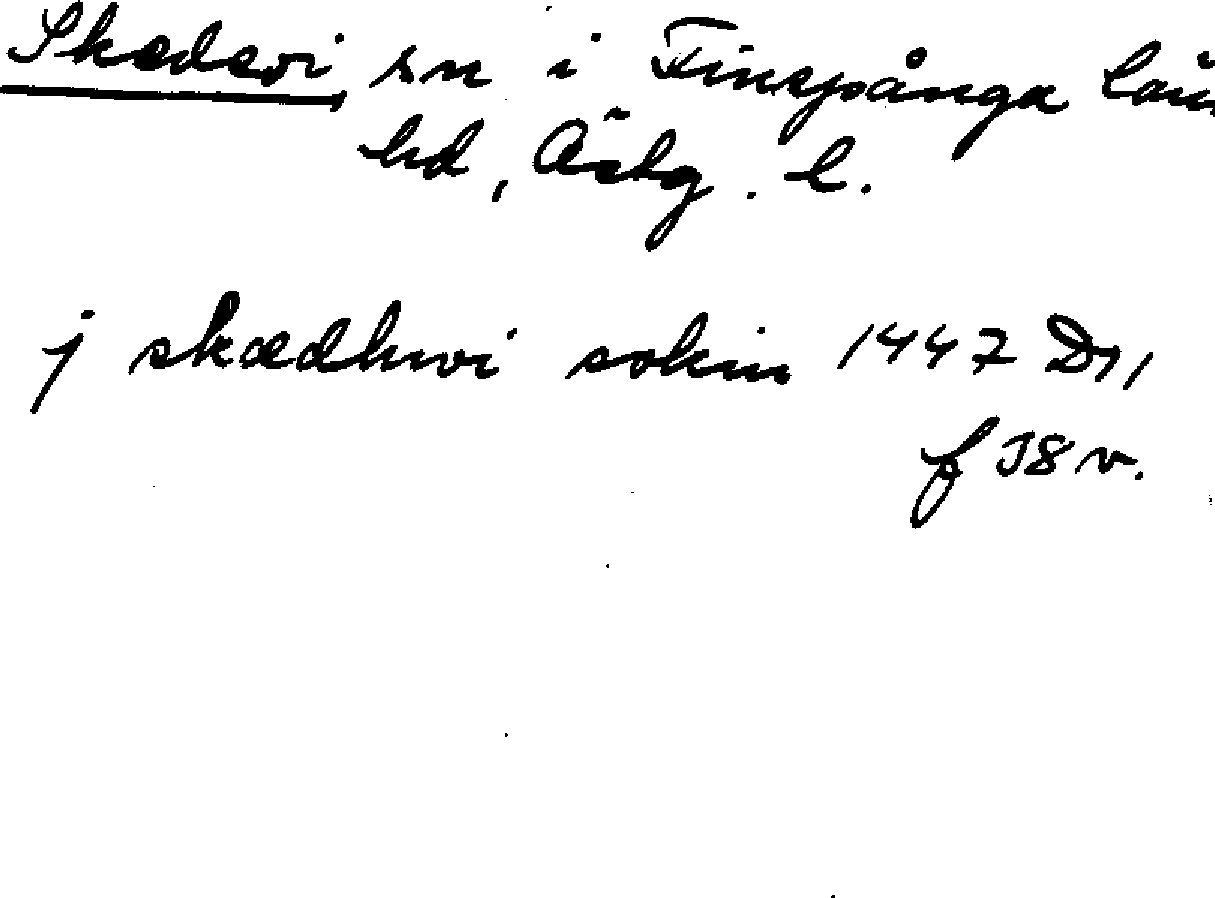 Skedevi sn i Finspånga län
hd, Östg. l.
j skædhwi sokin 1447 D11
f 38 v.